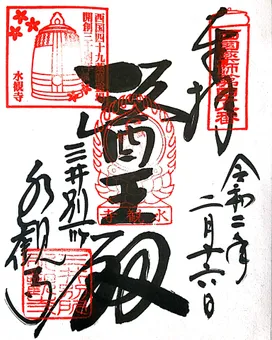 奉拝
令和二年
二月十六日
醫王殿
三井別所
水観寺
西国四十九薬師霊場
水観寺
水観寺